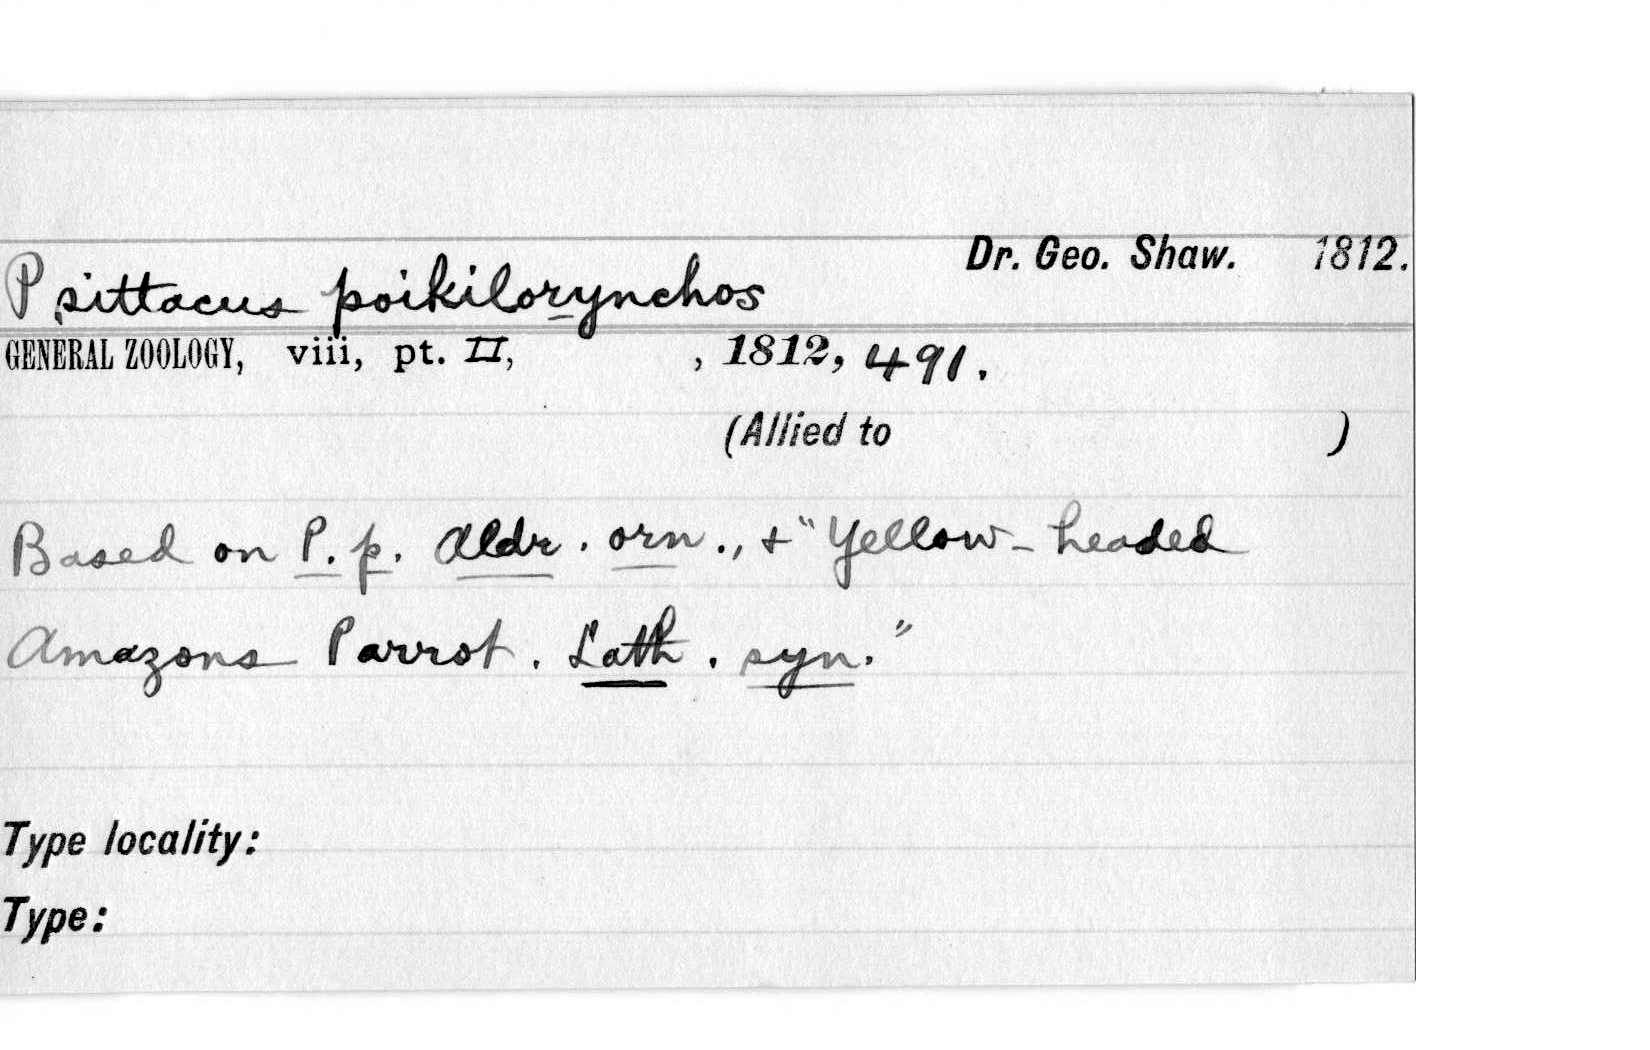 Dr. Geo. Shaw. 1812.
Psittacus poikilorynchos
GENERAL ZOOLOGY, viii, pt. II, , 1812, 491.
(Allied to )
Based on P. p. Aldr. orn., + "Yellow-headed
Amazons Parrot. Lath. syn."
Type locality:
Type: